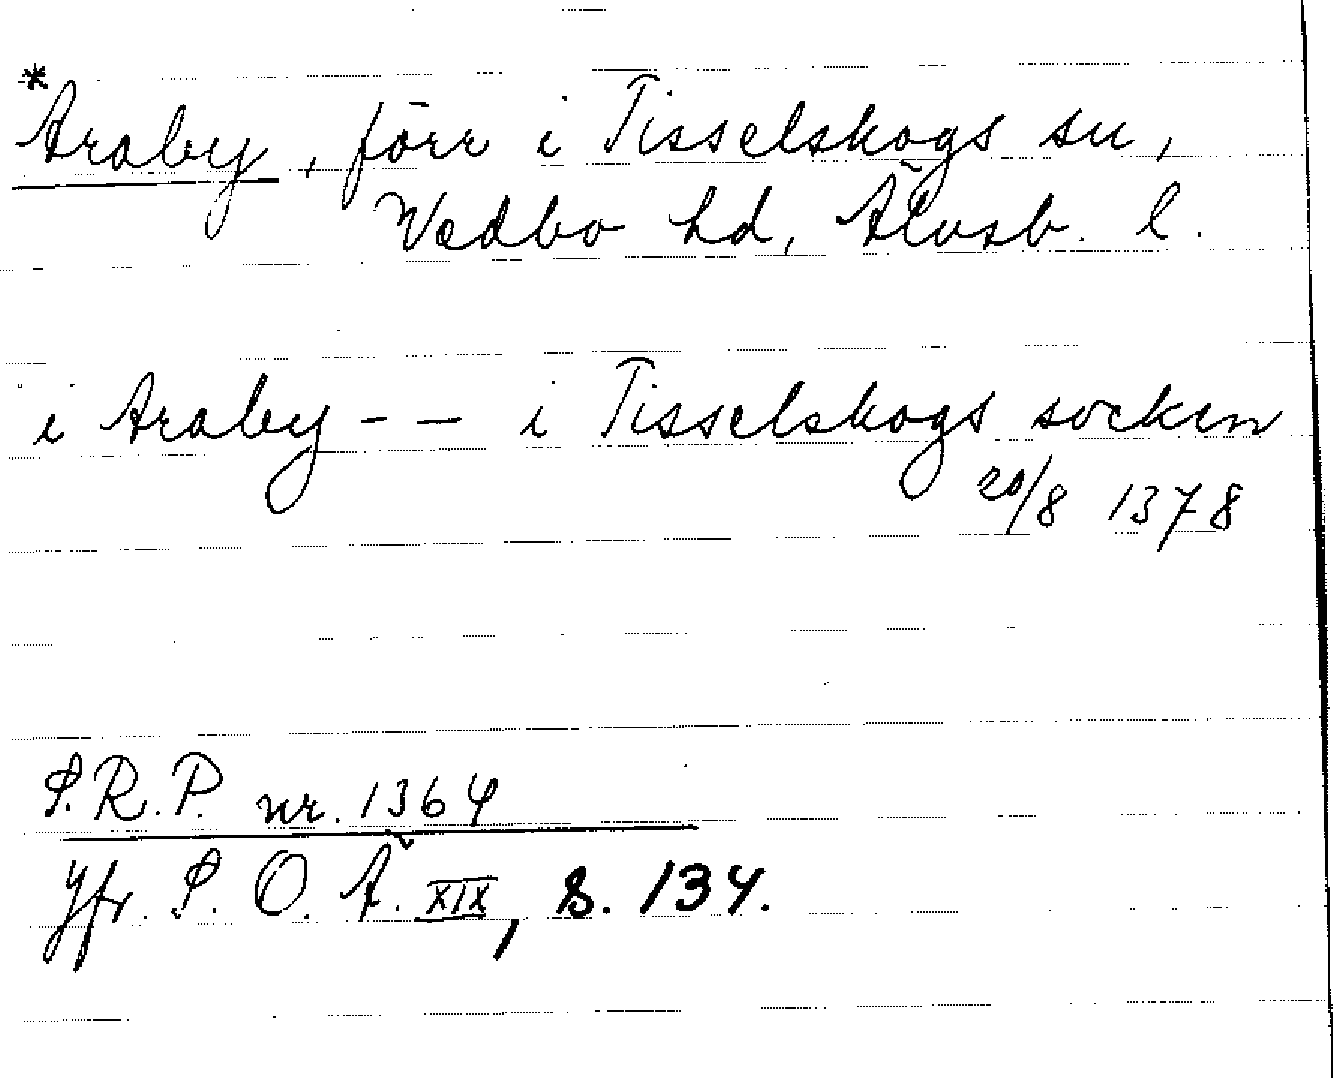 *Araby, förr i Tisselskogs sn,
Vedbo hd, Älvsb. l.
i Araby - - i Tisselskogs socken
20/8 1378
S.R.P. nr. 1364
Jfr. S. O. Ä. XIX, s. 134.